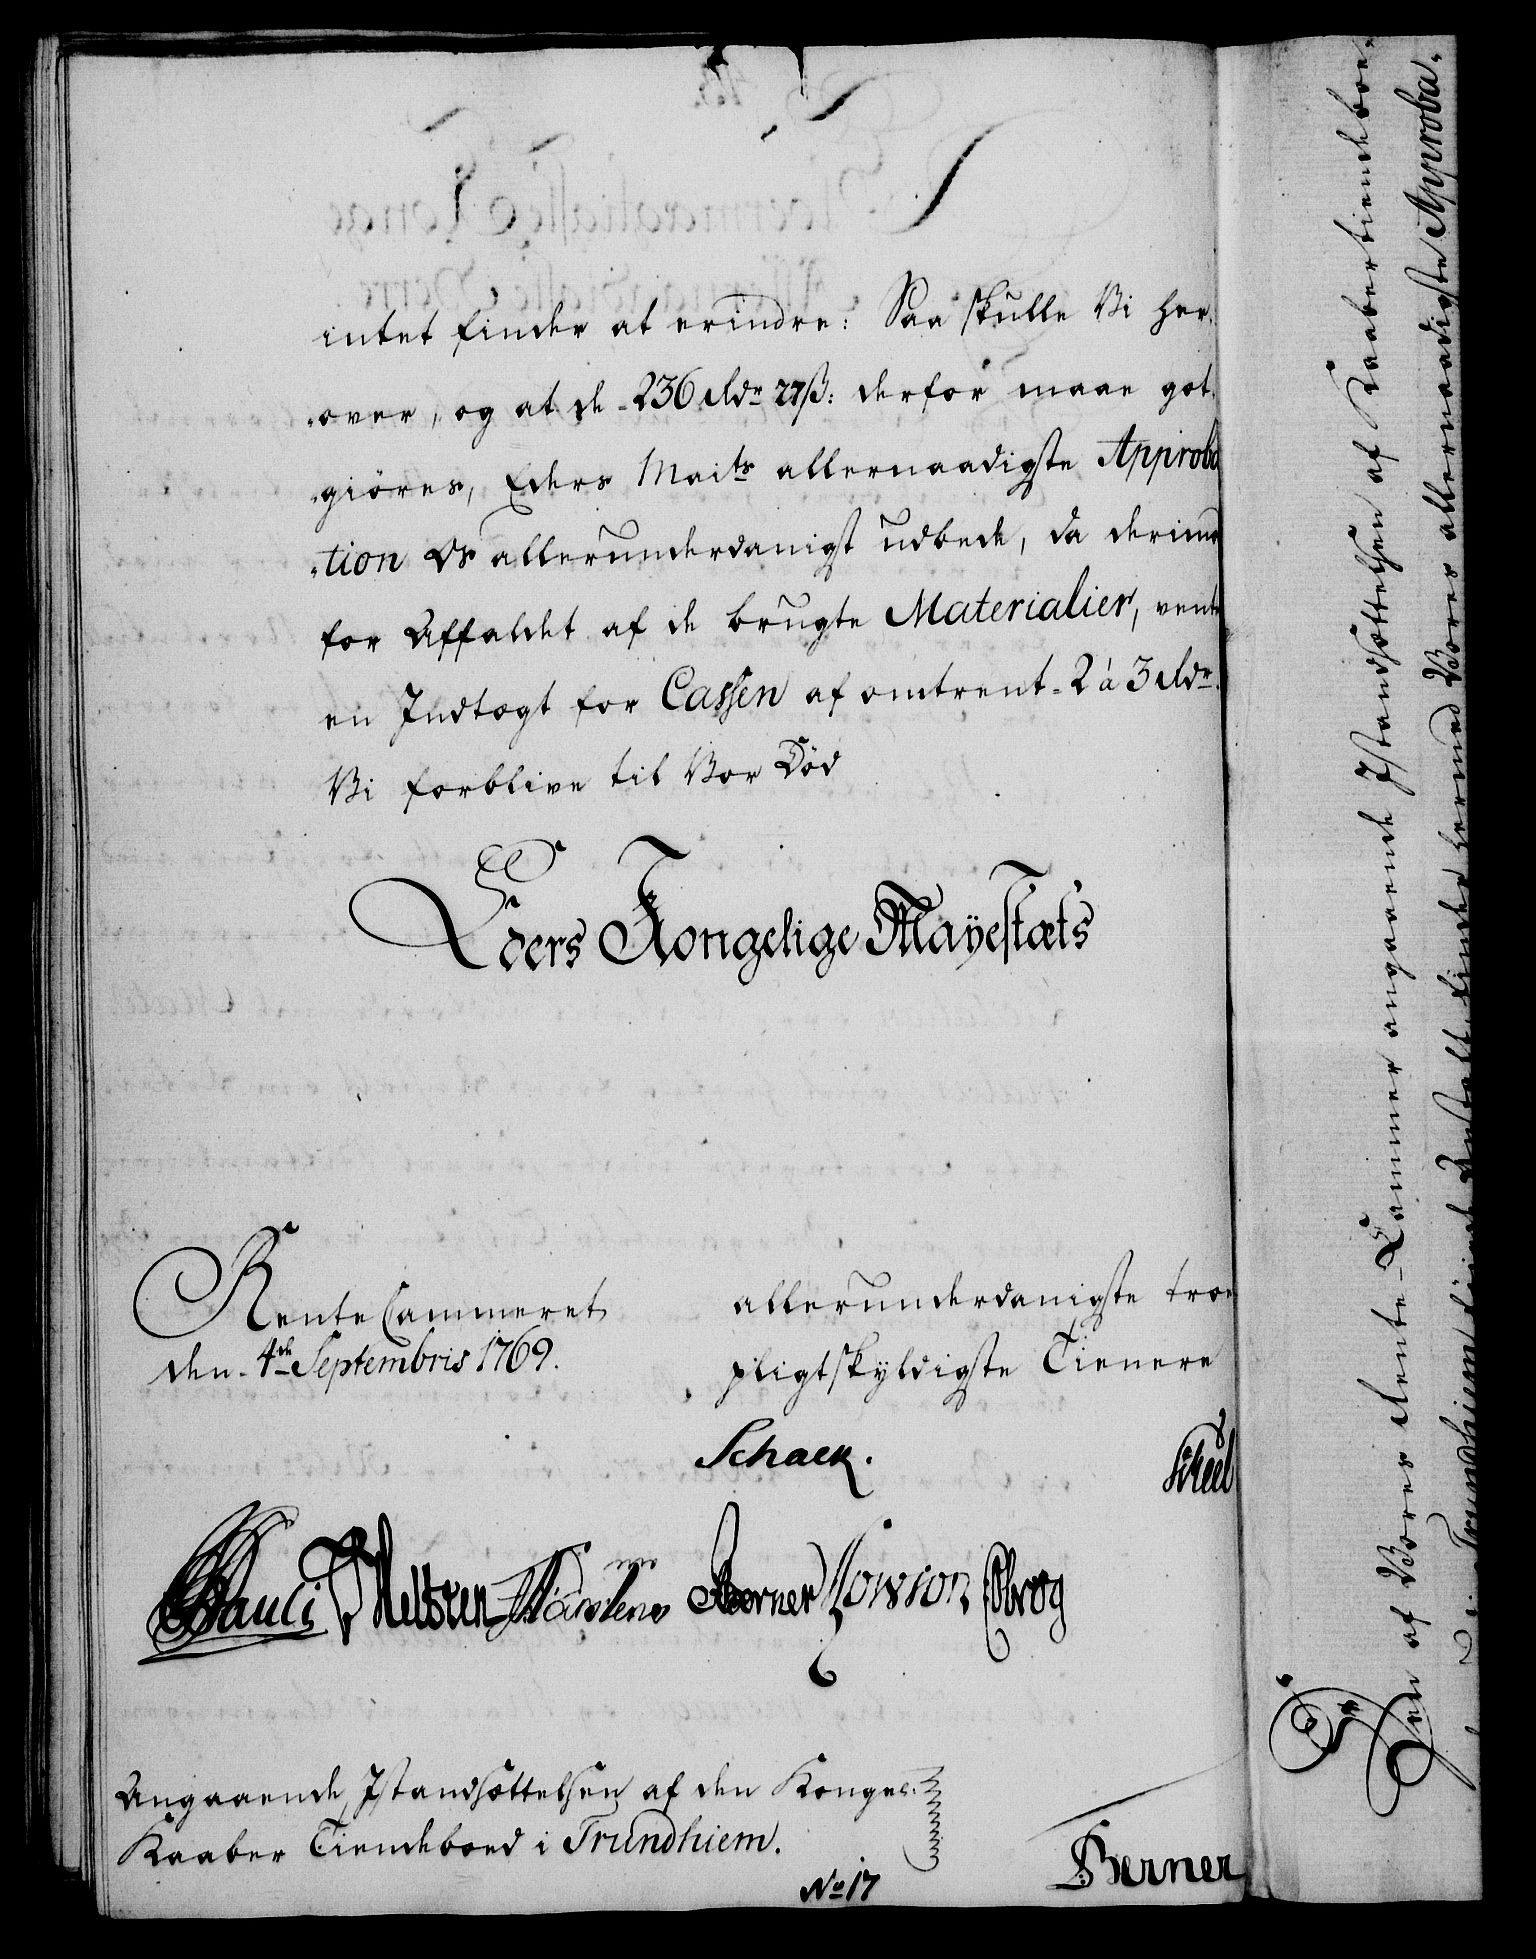 intet finder at erindre: Saa skulle Vi her,
„over, og at de 236 Rdr 27 ß: derfor maae got,
„giöres, Eders Maits allernaadigste Approba
„tion Os allerunderdanigst udbede, da derimod
for Affaldet af de brugte Materialier, ventes
en Indtægt for Cassen af omtrent 2 à 3 Rdr.
Vi forblive til Vor Död
Eders Kongelige Mayestæts
Rente Cammeret
den 4de Septembris 1769.
allerunderdanigste troe
pligtskyldigste Tienere
Schack.
Scheel
Berner
Cowson
Angaaende, Istandsættelsen af den Kongel:
Kaaber Tiendeboed i Trundhiem.
No 17
Berner
Den af Vores Rente-Cammer angaaende Istandsættelsen af Kaabertiendeboe,
i Trundhiem finder hermed Vores allernaadigste Approba,